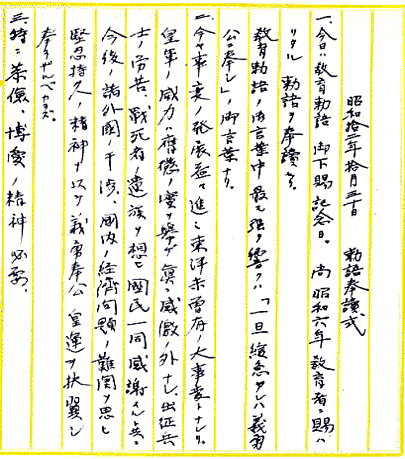 昭和拾二年拾月三十日　勅語奉読式
一、今日ハ教育勅語御下賜記念日、尚昭和六年教育者ニ賜ハ
リタル勅語ヲ奉読ス、
教育勅語ノ御言葉中最モ強ク響クハ「一旦緩急アレハ義勇
公ニ奉シ」ノ御言葉ナリ、
二、今ヤ事変ノ発展益々進ミ東洋未曽有ノ大事変トナレリ、
皇軍ノ威力ハ膺懲ノ実ヲ挙ゲ真ニ感激ノ外ナシ、出征兵
士ノ労苦、戦死者ノ遺族ヲ想ヒ国民一同感謝スルト共ニ
今後ノ諸外国ノ干渉、国内ノ経済問題ノ難関ヲ思ヒ
堅忍持久ノ精神ヲ以テ義勇奉公皇運ヲ扶翼シ
奉ラザルベカラズ、
三、時ニ恭倹、博愛ノ精神必要、